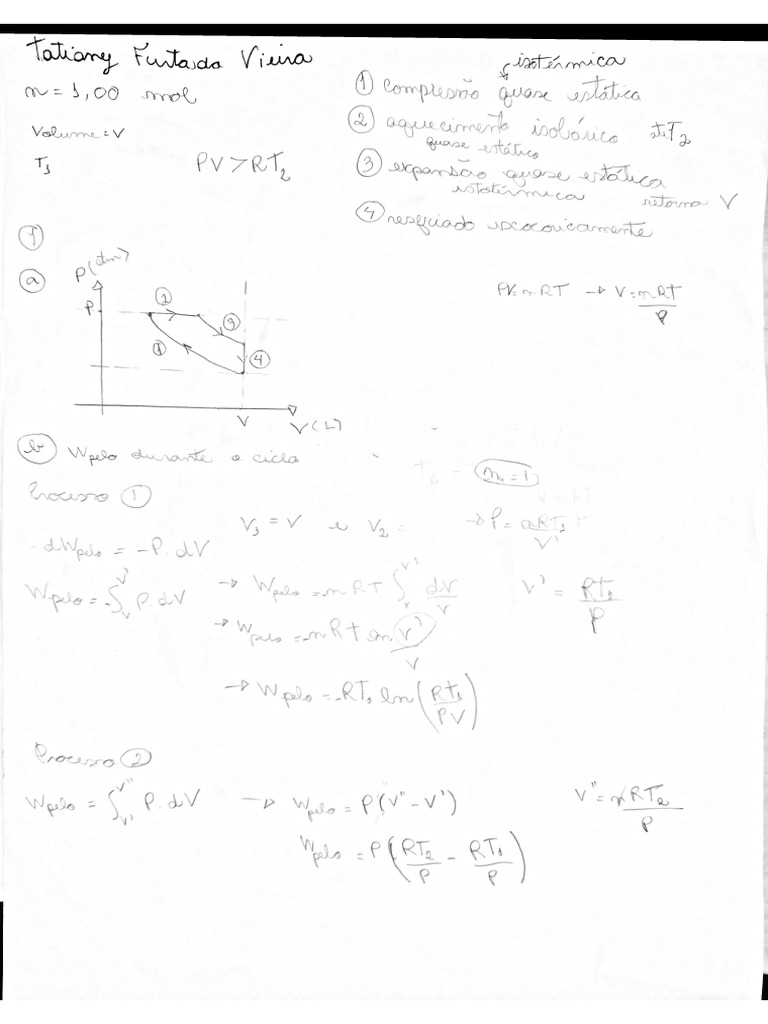 Tatiany Furtado Vieira
n = 1,00 mol
Volume = V
T₁
PV > RT₂
isotérmica
① compressão quase estática
② aquecimento isobárico até T₂
quase estático
③ expansão quase estática
isotérmica retorna V
④ resfriado isocoricamente
①
ⓐ
P(atm)
P
② ③ ① ④
V
V(L)
PV = nRT → V = nRT/P
ⓑ Wpelo durante o ciclo
n = 1
Processo ①
V₁ = V e V₂ = → P = nRT₁/V'
-dWpelo = -P.dV
Wpelo = -∫ᵥ^V' P.dV → Wpelo = -nRT ∫ᵥ^V' dV/V V' = RT₁/P
→ Wpelo = -nRT ln V'/V
→ Wpelo = -RT₁ ln (RT₁/PV)
Processo ②
Wpelo = ∫ᵥ'^V'' P.dV → Wpelo = P(V'' - V') V'' = nRT₂/P
Wpelo = P(RT₂/P - RT₁/P)